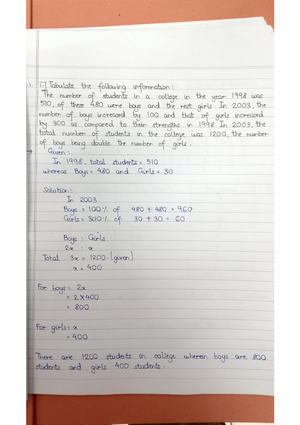 1. i) Tabulate the following information :
The number of students in a college in the year 1998 was
510, of these 480 were boys and the rest girls. In 2003, the
number of boys increased by 100 and that of girls increased
by 300 as compared to their strengths in 1998. In 2003, the
total number of students in the college was 1200, the number
of boys being double the number of girls.
→ Given :
In 1998, total students = 510
whereas Boys = 480 and Girls = 30
Solution :
In 2003
Boys = 100% of 480 + 480 = 960
Girls = 300% of 30 + 30 = 60
Boys : Girls
2x : x
Total 3x = 1200 (given)
x = 400
For boys = 2x
= 2x400
= 800
For girls = x
= 400
There are 1200 students in college wherein boys are 800
students and girls 400 students.